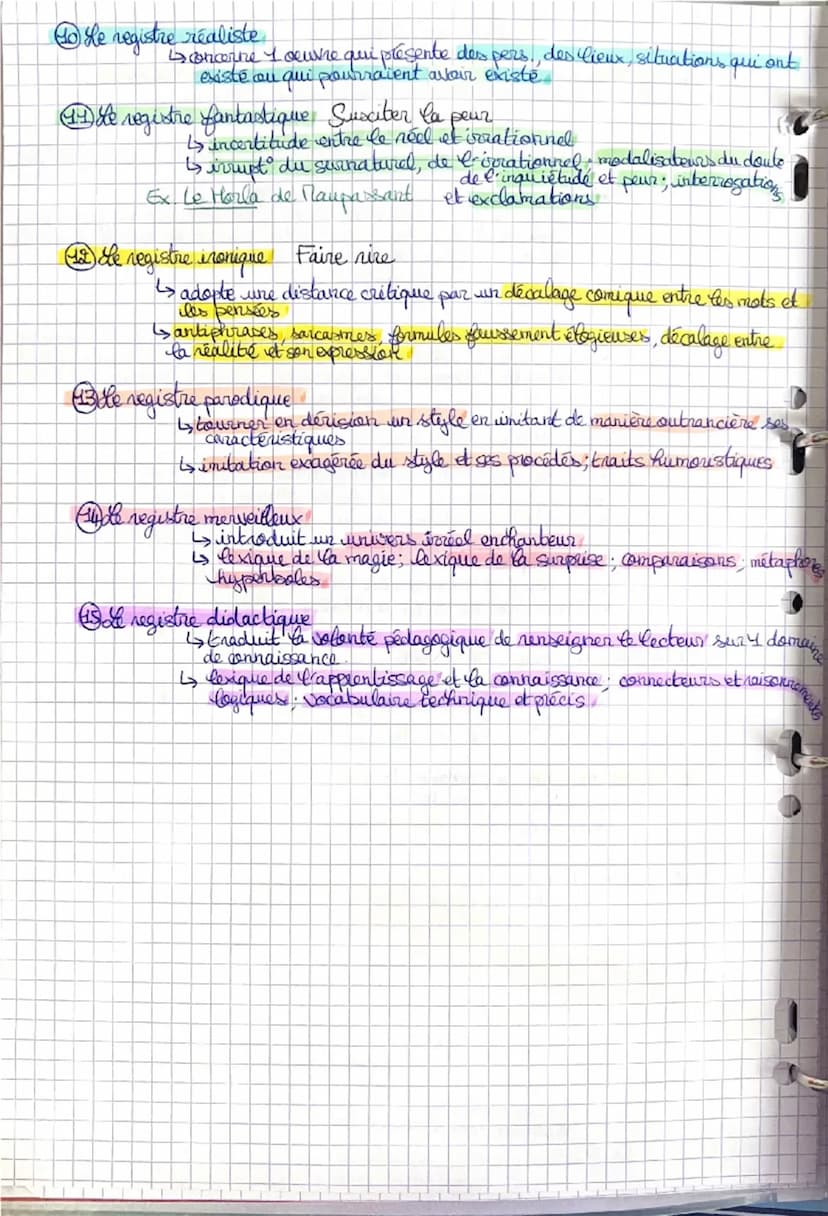 10 Le registre réaliste
↳ concerne 1 oeuvre qui présente des pers., des lieux, situations qui ont
existé ou qui pourraient avoir existé.
11 Le registre fantastique Susciter la peur
↳ incertitude entre le réel et irrationnel
↳ irrupt° du surnaturel, de l'irrationnel; modalisateurs du doute
de l'inquiétude et peur; interrogations
Ex. Le Horla de Maupassant et exclamations
12 Le registre ironique Faire rire
↳ adopte une distance critique par un décalage comique entre les mots et
les pensées
↳ antiphrases, sarcasmes, formules faussement élogieuses, décalage entre
la réalité et son expression
13 Le registre parodique
↳ tourner en dérision un style en imitant de manière outrancière ses
caractéristiques
↳ imitation exagérée du style et ses procédés; traits humoristiques
14 Le registre merveilleux
↳ introduit un univers irréel enchanteur
↳ lexique de la magie; lexique de la surprise; comparaisons; métaphores
hyperboles
15 Le registre didactique
↳ traduit la volonté pédagogique de renseigner le lecteur sur 1 domaine
de connaissance.
↳ lexique de l'apprentissage et la connaissance; connecteurs et raisonnements
logiques; vocabulaire technique et précis